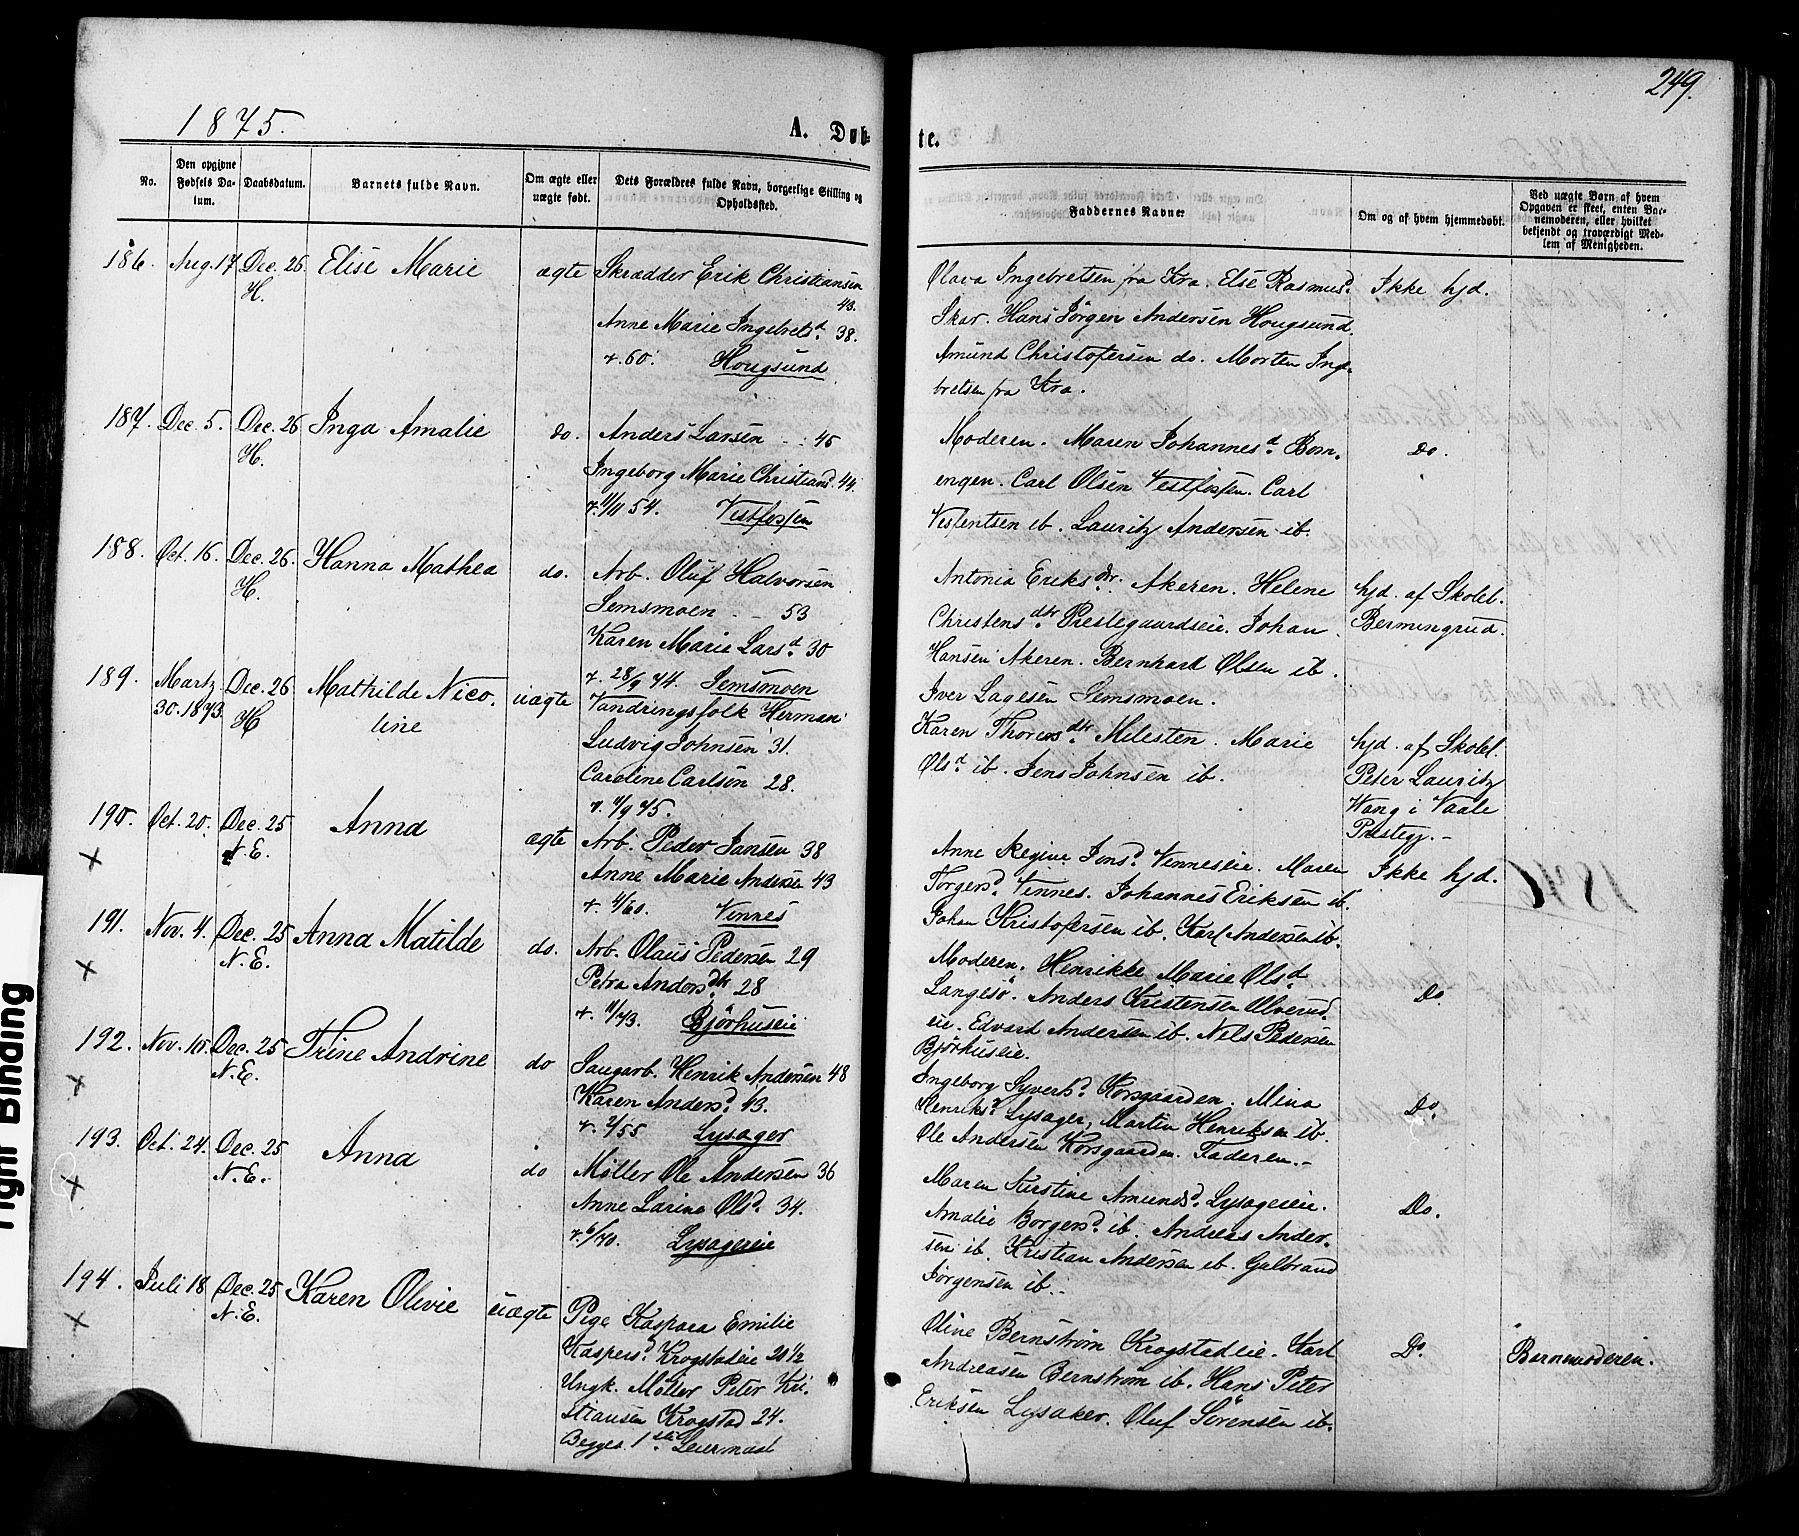 249.
1875.
A. Døbte.
No.
Den opgivne Fødsels Datum.
Daabsdatum.
Barnets fulde Navn.
Om ægte eller uægte født.
Dets Forældres fulde Navn, borgerlige Stilling og Opholdssted.
Faddernes Navne.
Om og af hvem hjemmedøbt.
Ved uægte Barn af hvem Opgaven er skeet, enten Barnemoderen, eller hvilket bekjendt og troværdigt Medlem af Menigheden.
186. Aug. 17 Dec. 26 H. Elise Marie ægte
Skrædder Erik Christiansen
43.
Anne Marie Ingebretsd. 38.
v. 60. Hougsund
Olava Ingebretsen fra Kra. Else Rasmusd.
Skar. Hans Jörgen Andersen Hougsund.
Amund Christofersen do. Morten Inge-
bretsen fra Kra.
Ikke hjd.
187. Dec. 5. Dec. 26 H. Inga Amalie do.
Anders Larsen 45
Ingeborg Marie Christiansd. 44.
v. 11/11 54. Vestfossen
Moderen. Maren Johannesd. Bom-
engen. Carl Olsen Vestfossen. Carl
ib. Lauritz Andersen ib.
Do.
188. Oct. 16. Dec. 26. H. Hanna Mathea do.
Arb. Oluf Halvorsen
Semsmoen 53
Karen Marie Larsd. 30
v. 28/9 74. Semsmoen
Antonia Eriksdr. Akeren. Helene
Christensdtr. Prestegaardseie. Johan
Hansen Akeren. Bernhard Olsen ib.
Iver Lagesen Semsmoen.
hjd. af Skolel.
Bermingrud.
189. Martz 30. 1873. Dec. 26 H Mathilde Nico-
line
uægte
Vandringsfolk Herman
Ludvig Johnsen 31.
Caroline Carlsen 28.
v. 1/9 75.
Karen Thorensdtr. Milesten. Marie
Olsd. ib. Jens Johnsen ib.
hjd. af Skolel.
Peter Lauritz
Wang i Vaale
Prestegj.
190. Oct. 20. Dec. 25 N.E. Anna ægte
×
Arb. Peder Jansen 38
Anne Marie Andersen 43
v. 4/60. Vinnes
Anne Regine Jensd. Venneseie. Maren
Torgersd. Vinnes. Johannes Eriksen ib.
Johan Kristofersen ib. Karl Andersen ib.
Ikke hjd.
191. Nov. 4. Dec. 25 N.E. Anna Matilde do.
×
Arb. Olaus Pedersen 29
Petra Andersdtr 28
v. 11/73. Bjørhuseie
Moderen. Henrikke Marie Olsd.
Langesö. Anders Kristensen Ulverud-
eie. Edvard Andersen ib. Nels Pedersen
Bjørhuseie.
Do
192. Nov. 10. Dec. 25 N.E. Trine Andrine do
×
Saugarb. Henrik Andersen 48
Karen Andersd. 43.
v. 2/55 Lysager
Ingeborg Syvertsd. Korsgaarden. Mina
Henriksd. Lysager, Martin Henriksen ib.
Ole Andersen Korsgaarden. Faderen.
Do.
193. Oct. 24. Dec. 25 N.E. Anna do
×
Møller Ole Andersen 36
Anne Larine Olsd. 34.
v. 6/70. Lysagereie
Maren Kirstine Amundsd. Lysagereie.
Amalie Borgersd. ib. Andreas Ander-
sen ib. Kristian Andersen ib. Gulbrand
Jörgensen ib.
Do.
194. Juli 18 Dec. 25 N.E. Karen Olivie uægte
×
Pige Kaspara Emilie
Kaspersd. Krogstadeie 20 1/2
Ungk. Møller Peter Kri-
stiansen Krogstad 24.
Begges 1ste Leiermaal
Oline Bernstrøm Krogstadeie. Karl
Andreasen Bernstrøm ib. Hans Peter
Eriksen Lysaker. Oluf Sörensen ib.
Do.
Barnemoderen.
Tight Binding